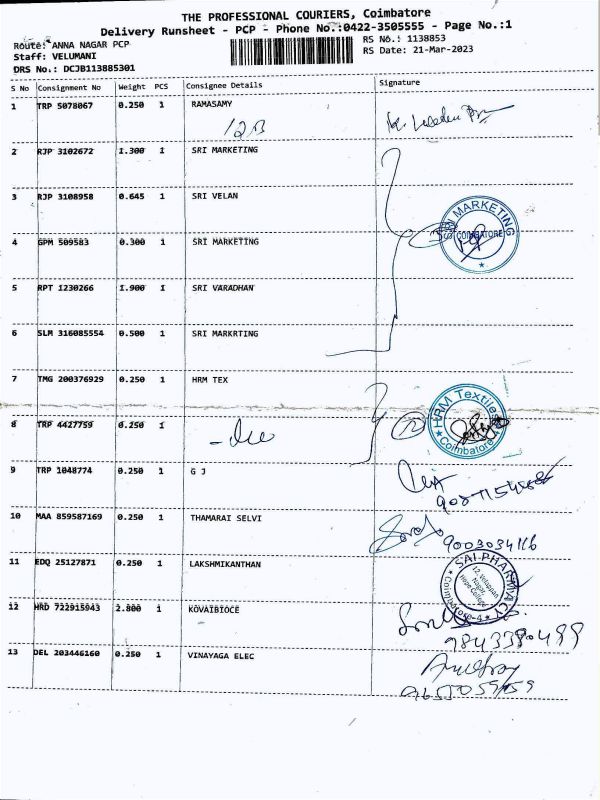 THE PROFESSIONAL COURIERS, Coimbatore
Delivery Runsheet - PCP - Phone No.:0422-3505555 - Page No.:1
Route: ANNA NAGAR PCP
RS No.: 1138853
Staff: VELUMANI
RS Date: 21-Mar-2023
DRS No.: DCJB113885301
S No Consignment No Weight PCS Consignee Details Signature
1 TRP 5078067 0.250 1 RAMASAMY
12B
2 RJP 3102672 1.300 1 SRI MARKETING
3 RJP 3108958 0.645 1 SRI VELAN
SRI MARKETING
COIMBATORE
4 GPM 509583 0.300 1 SRI MARKETING
5 RPT 1230266 1.900 1 SRI VARADHAN
6 SLM 316085554 0.500 1 SRI MARKRTING
7 TMG 200376929 0.250 1 HRM TEX
HRM Textiles
Coimbatore
8 TRP 4427759 0.250 1
2
9 TRP 1048774 0.250 1 G J
10 MAA 859587169 0.250 1 THAMARAI SELVI
9003034116
11 EDQ 25127871 0.250 1 LAKSHMIKANTHAN
SAI PHARMACY
Coimbatore-4
12 HRD 722915943 2.800 1 KOVAIBIOCE
13 DEL 203446160 0.250 1 VINAYAGA ELEC